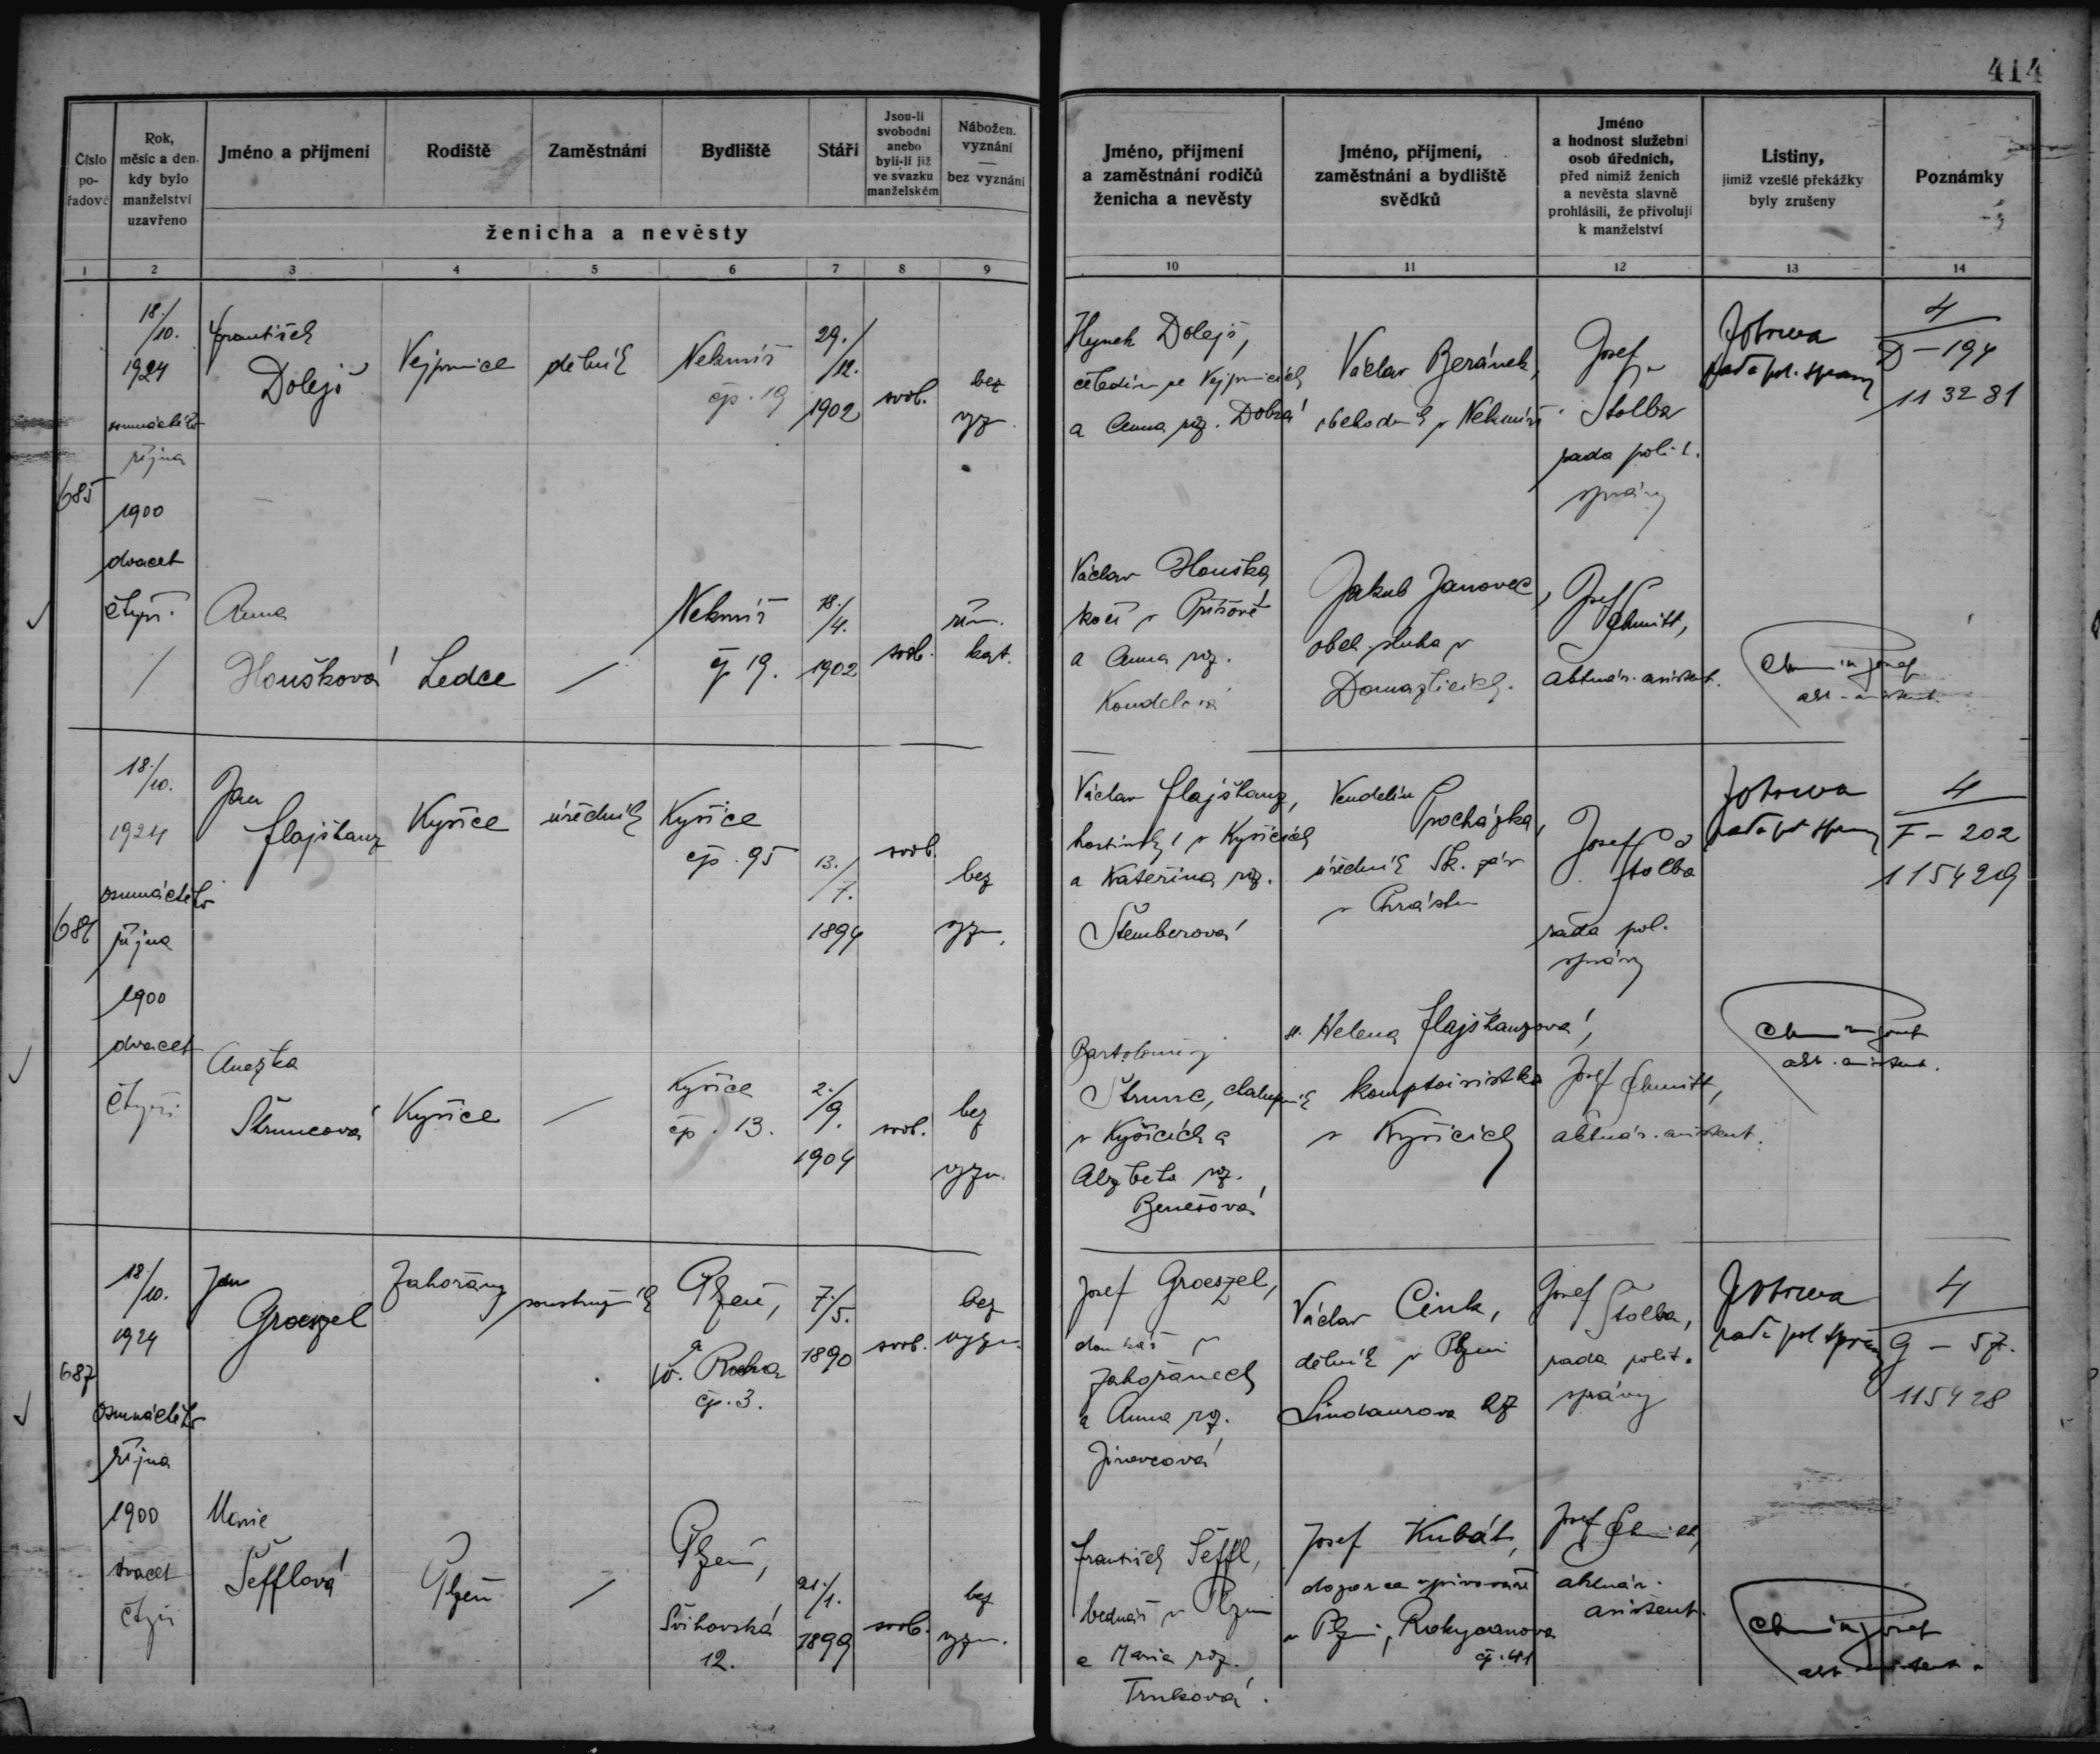 414
Číslo po-řadové
Rok, měsíc a den, kdy bylo manželství uzavřeno
Jméno a příjmení
Rodiště
Zaměstnání
Bydliště
Stáří
Jsou-li svobodni anebo byli-li již ve svazku manželském
Nábožen. vyznání — bez vyznání
ženicha a nevěsty
Jméno, příjmení a zaměstnání rodičů ženicha a nevěsty
Jméno, příjmení, zaměstnání a bydliště svědků
Jméno a hodnost služební osob úředních, před nimiž ženich a nevěsta slavně prohlásili, že přivolují k manželství
Listiny, jimiž vzešlé překážky byly zrušeny
Poznámky
1 2 3 4 5 6 7 8 9 10 11 12 13 14
685
18./10.
1924
osmnáctého
října
1900
dvacet
čtyři
František
Dolejš
Vejprnice
dělník
Nekmíř
čp. 19
29./12.
1902
svob.
bez
vyzn.
Hynek Dolejš,
čeledín ve Vejprnicích
a Anna roz. Dobrá
Václav Beránek,
obchodník v Nekmíři
Josef
Štolba
rada polit.
správy
rada pol. správy
4
D – 194
113281
Anna
Houšková
Ledce
Nekmíř
čp 19.
18./4.
1902
svob.
řím.
kat.
Václav Houška
kočí v Příšově
a Anna roz.
Koudelová
Jakub Janovec,
obec. sluha v
Domažlicích.
Josef
Schmitt,
aktuár. asistent.
akt. asistent.
686
18./10.
1924
osmnáctého
října
1900
dvacet
čtyři
Jan
Flajšhanz
Kyšice
úředník
Kyšice
čp. 95
13./7.
1894
svob.
bez
vyzn.
Václav Flajšhanz,
hostinský v Kyšicích
a Kateřina roz.
Štemberová
Vendelín
Procházka,
úředník Šk. záv
v Chrástu
Josef
Štolba
rada pol.
správy
rada pol správy
4
F – 202
115429
Anežka
Štruncová
Kyšice
Kyšice
čp. 13.
2./9.
1904
svob.
bez
vyzn.
Bartoloměj
Štrunc, chalupník
v Kyšicích a
Alžběta roz.
Benešová
Helena Flajšhanzová,
komptoiristka
v Kyšicích
Josef Schmitt,
aktuár. asistent.
akt. asistent.
687
18./10.
1924
osmnáctého
října
1900
dvacet
čtyři
Jan
Groeszel
Zahořany
soustružník
Plzeň,
u
sv. Rocha
čp. 3.
7./5.
1890
svob.
bez
vyzn.
Josef Groeszel,
domkář v
Zahořanech
a Anna roz.
Jinovcová
Václav Cink,
dělník v Plzni
Lindaurova 27
Josef
Štolba,
rada polit.
správy
rada pol správy
4
G – 57.
115428
Marie
Šefflová
Plzeň
Plzeň,
Švihovská
12.
21./1.
1899
svob.
bez
vyzn.
František Šeffl,
bednář v Plzni
a Marie roz.
Trnková.
Josef Kubát,
dozorce v pivováře
v Plzni, Rokycanova
čp. 41
Josef Schmitt,
aktuár.
asistent.
akt. asistent.